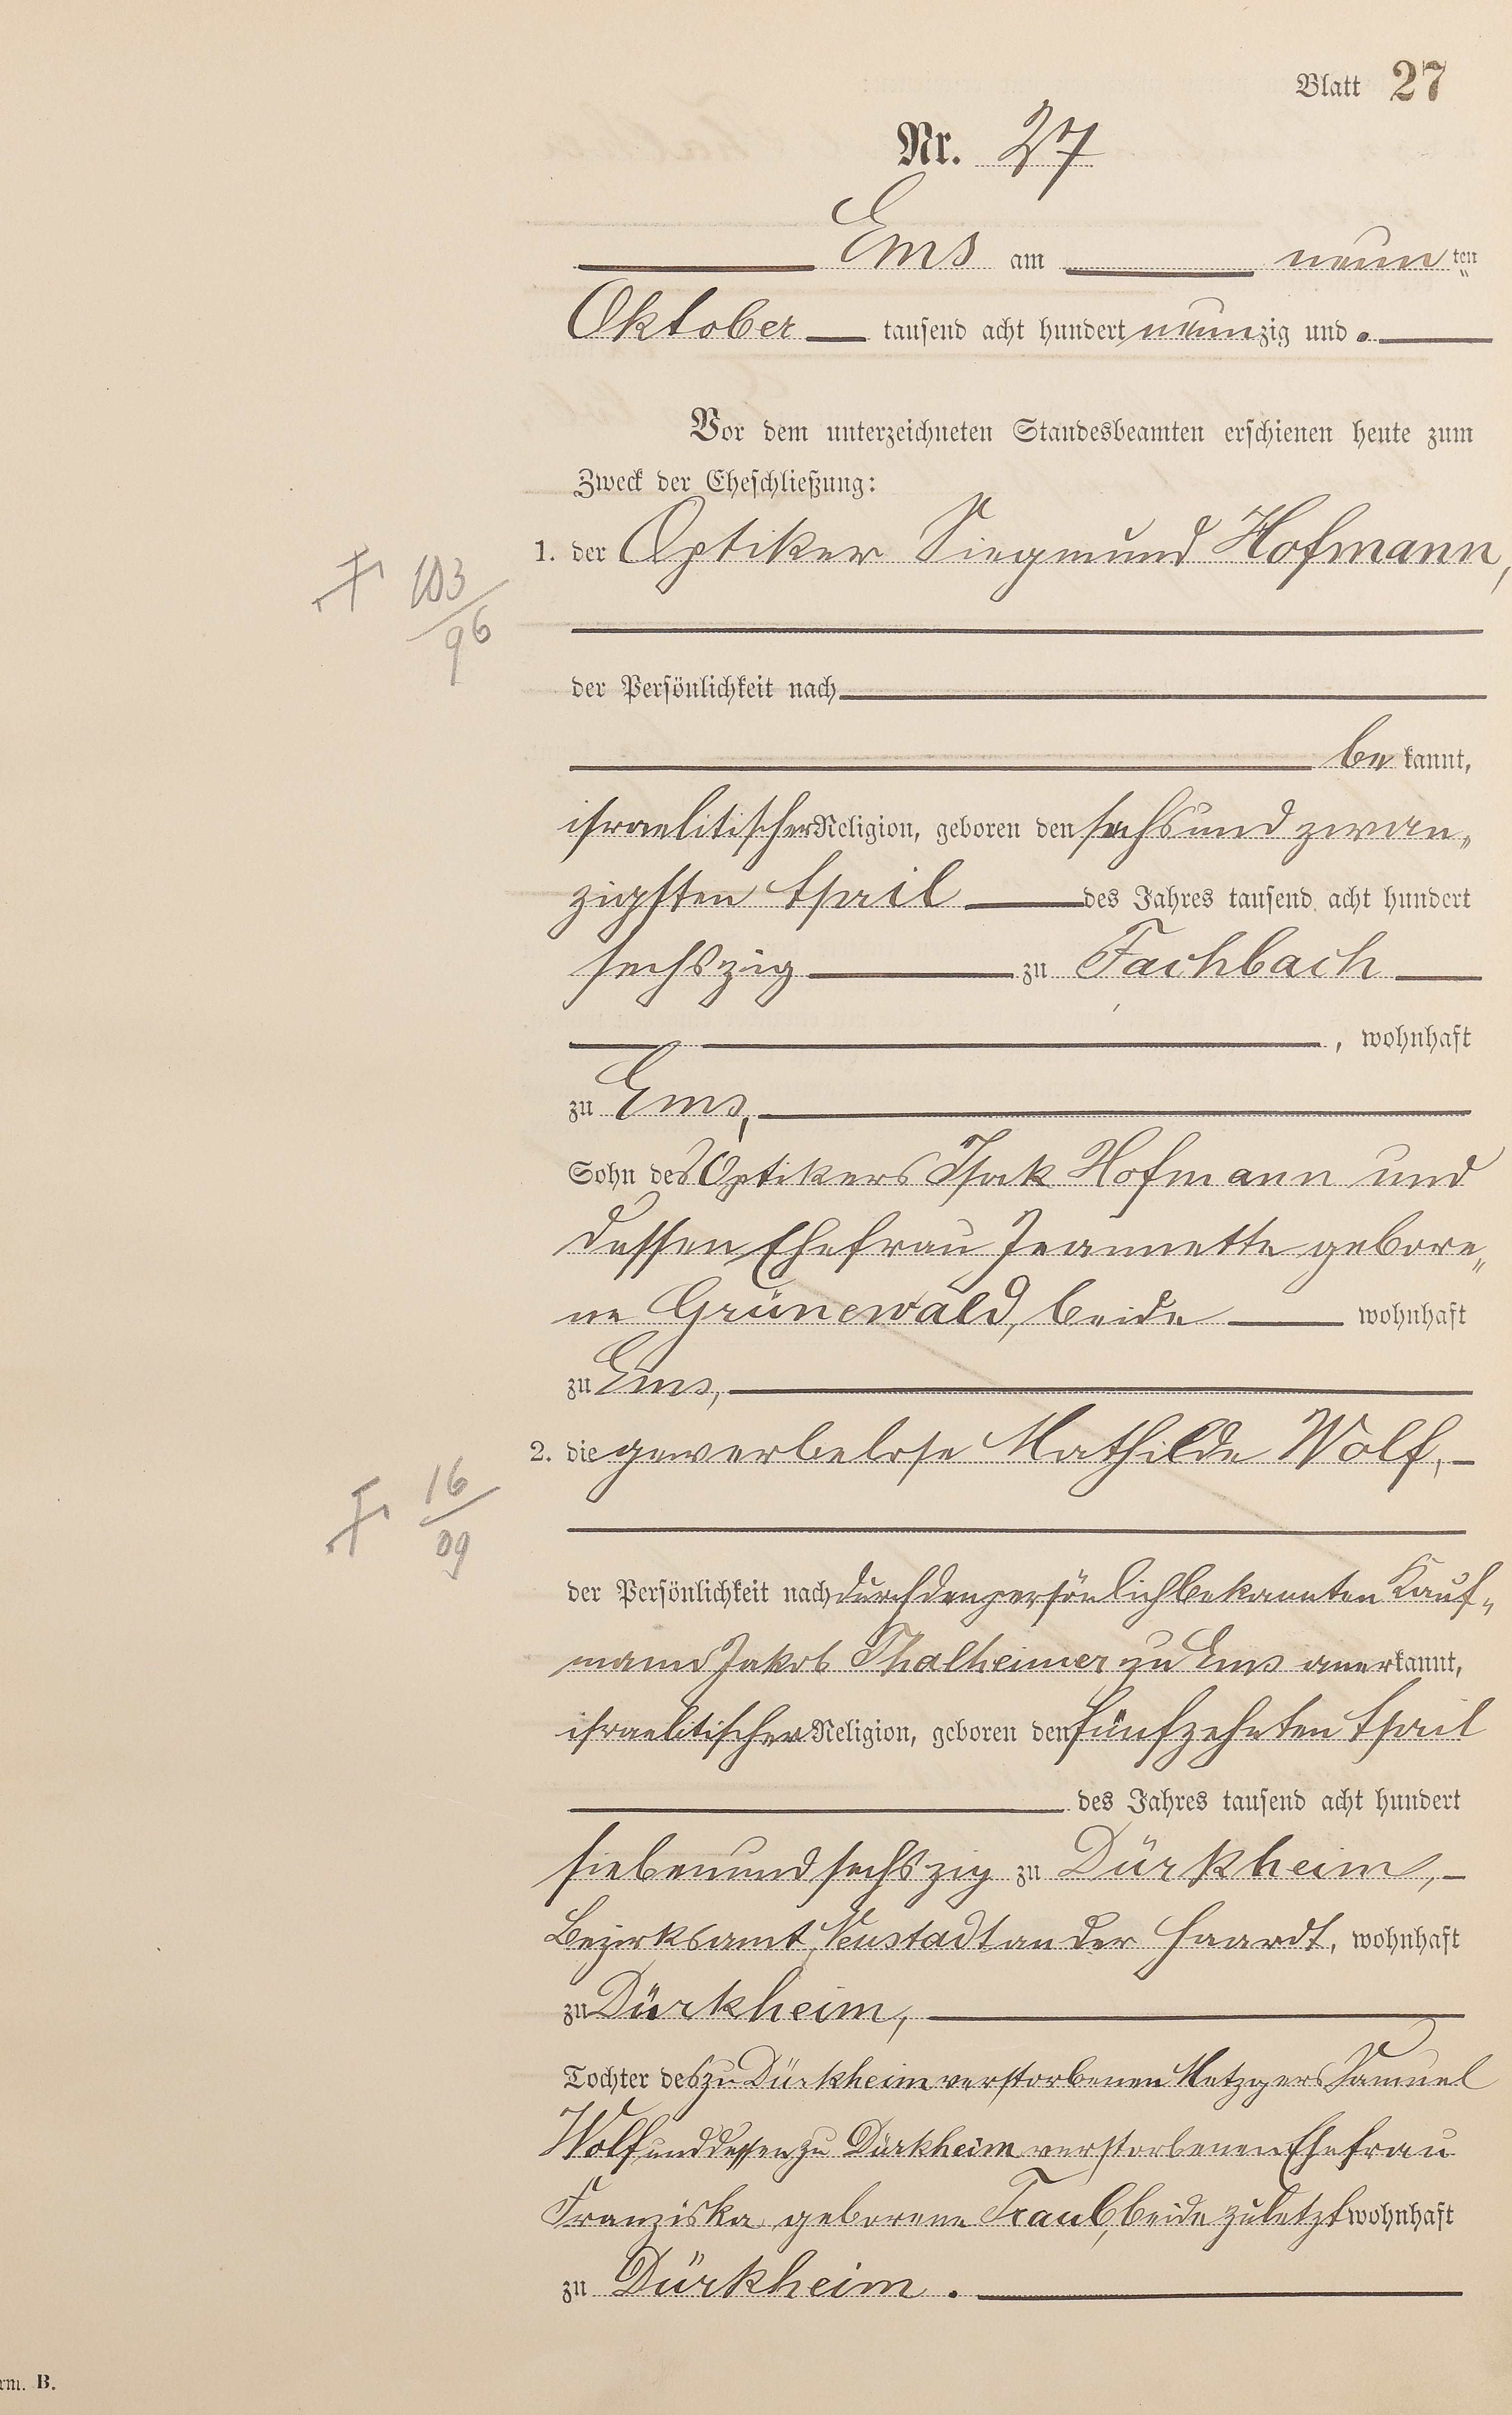 Blatt 27
Nr. 27
Ems am neun ten
Oktober tausend acht hundert neunzig und .
Vor dem unterzeichneten Standesbeamten erschienen heute zum
Zweck der Eheschließung:
1. der Optiker Siegmund Hofmann,
103
96
der Persönlichkeit nach
be kannt,
israelitischer Religion, geboren den sechsundzwan„
zigsten April des Jahres tausend acht hundert
sechszig zu Fachbach
, wohnhaft
zu Ems,
Sohn des Optikers Isak Hofmann und
dessen Ehefrau Jeannette gebore„
ne Grünewald, beide wohnhaft
zu Ems,
2. die gewerbelose Mathilde Wolf,
16
09
der Persönlichkeit nach durch den persönlich bekannten Kauf„
mann Jakob Thalheimer zu Ems anerkannt,
israelitischer Religion, geboren den fünfzehnten April
des Jahres tausend acht hundert
siebenundsechszig zu Dürkheim,
Bezirksamt Neustadt an der Haardt, wohnhaft
zu Dürkheim,
Tochter des zu Dürkheim verstorbenen Metzgers Samuel
Wolf und dessen zu Dürkheim verstorbenen Ehefrau
Franziska geborene Traub, beide zuletzt wohnhaft
zu Dürkheim.
rm. B.